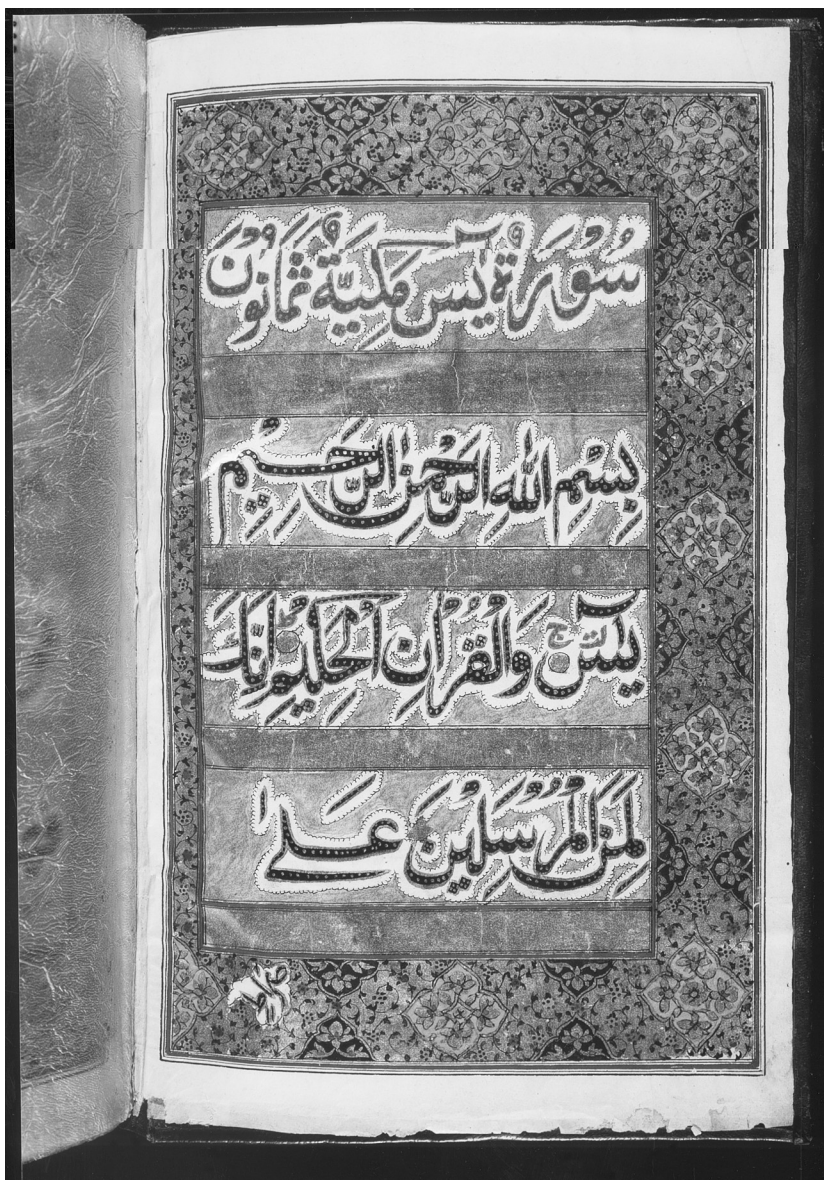 سُوْرَةُ يٰسٓ مَكِّيَّةٌ ثَمَانُوْنَ
بِسْمِ اللّٰهِ الرَّحْمٰنِ الرَّحِيْمِ
يٰسٓ وَالْقُرْاٰنِ الْحَكِيْمِ اِنَّكَ
لَمِنَ الْمُرْسَلِيْنَ عَلٰى
صراط